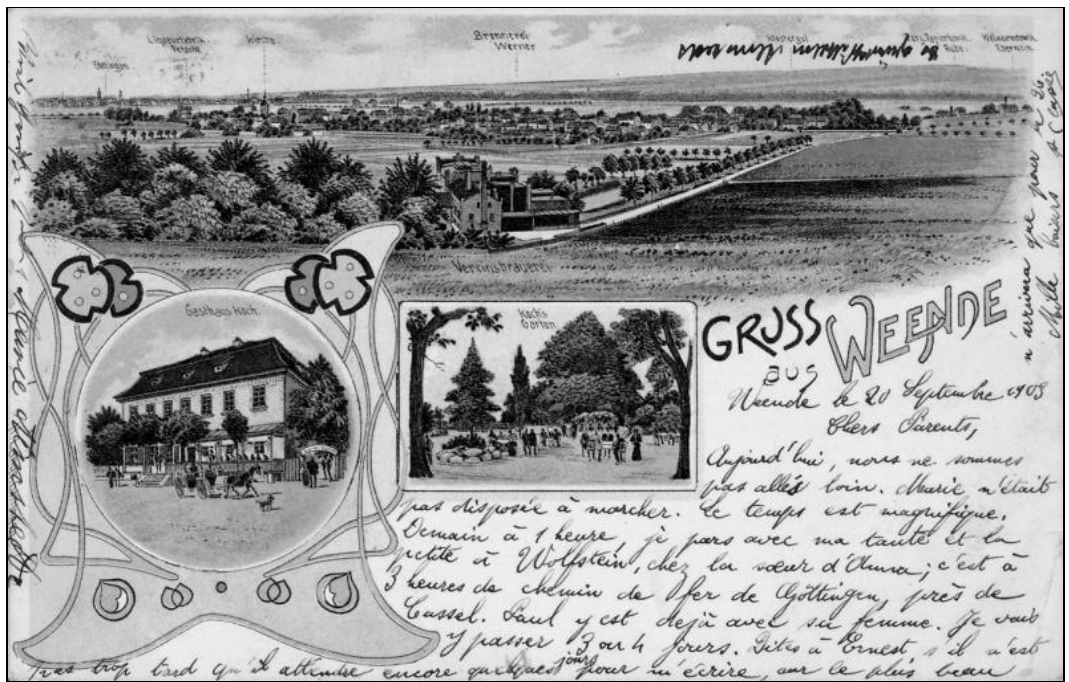 Göttingen
Liqueurfabrik
Kirche
Brennerei
Werner
Klostergut
Vereinsbrauerei
Gasthaus Koch.
Koch's
Garten
GRUSS
aus WEENDE
Weende le 20 Septembre 1903
Chers Parents,
Aujourd'hui, nous ne sommes
pas allés loin. Marie n'était
pas disposée à marcher. Le temps est magnifique.
Demain à 1 heure, je pars avec ma tante et la
petite à Wolfstein, chez la sœur d'Anna; c'est à
3 heures de chemin de fer de Göttingen, près de
Cassel. Paul y est déjà avec sa femme. Je vais
y passer 3 ou 4 jours. Dites à Ernest, s'il n'est
pas trop tard qu'il attendre encore quelques jours pour m'écrire, car le plus beau
n'arrivera que pour le 26.
Mille baisers